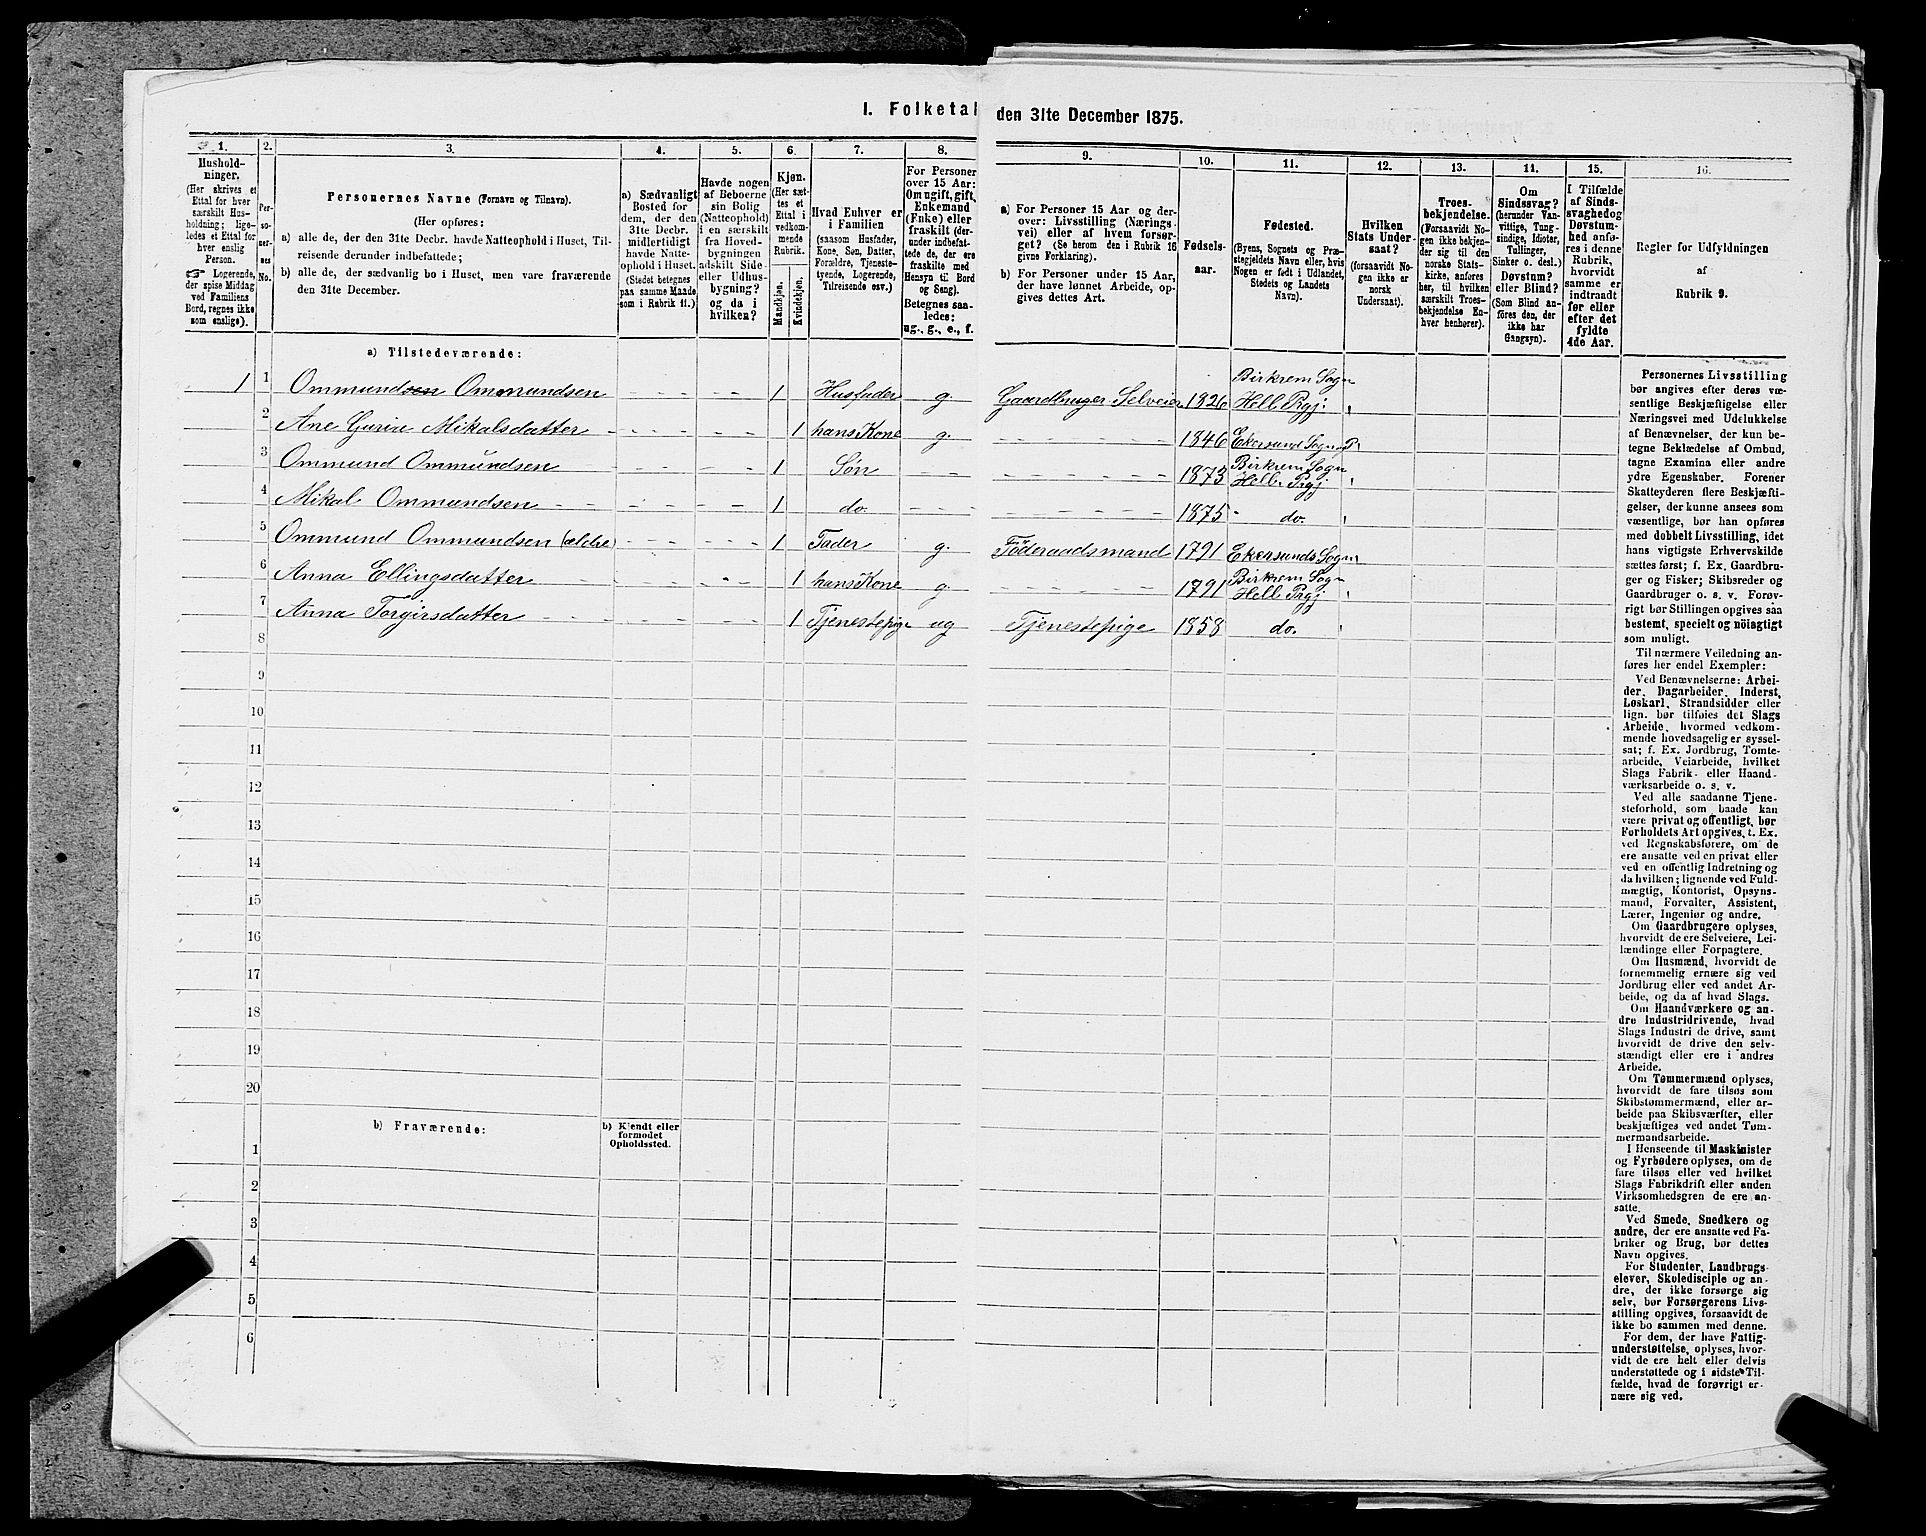 I. Folketal den 31te December 1875.
1. 2. 3. 4. 5. 6. 7. 8. 9. 10. 11. 12. 13. 14. 15. 16.
Hushold-
ninger.
(Her skrives et
Ettal for hver
særskilt Hus-
holdning; lige-
ledes et Ettal for
hver enslig
Person.
☞ Logerende,
der spise Middag
ved Familiens
Bord, regnes ikke
som enslige).
Per-
so-
ner-
nes
No.
Personernes Navne (Fornavn og Tilnavn).
(Her opføres:
a) alle de, der den 31te Decbr. havde Natteophold i Huset, Til-
reisende derunder indbefattede;
b) alle de, der sædvanlig bo i Huset, men vare fraværende
den 31te December.
a) Sædvanligt
Bosted for
dem, der den
31te Decbr.
midlertidigt
havde Natte-
ophold i Huset.
(Stedet betegnes
paa samme Maade
som i Rubrik 11.)
Havde nogen
af Beboerne
sin Bolig
(Natteophold)
i en særskilt
fra Hoved-
bygningen
adskilt Side-
eller Udhus-
bygning?
og da i
hvilken?
Kjøn.
(Her sæt-
tes et
Ettal i
vedkom-
mende
Rubrik.
Mandkjøn.
Kvindekjøn.
Hvad Enhver er
i Familien
(saasom Husfader,
Kone, Søn, Datter,
Forældre, Tjeneste-
tyende, Logerende,
Tilreisende osv.)
For Personer
over 15 Aar:
Om ugift, gift,
Enkemand
(Enke) eller
fraskilt (der-
under indbefat-
tede de, der
ere fraskilte med
Hensyn til Bord
og Seng).
Betegnes saa-
ledes:
ug., g., e., f.
a) For Personer 15 Aar og der-
over: Livsstilling (Nærings-
vei) eller af hvem forsør-
get? (Se herom den i Rubrik 16
givne Forklaring).
b) For Personer under 15 Aar,
der have lønnet Arbeide, op-
gives dettes Art.
Fødsels-
aar.
Fødested.
(Byens, Sognets og Præ-
stegjeldets Navn eller, hvis
Nogen er født i Udlandet,
Stedets og Landets
Navn).
Hvilken
Stats Under-
saat?
(forsaavidt No-
gen ikke er
norsk
Undersaat).
Troes-
bekjendelse.
(Forsaavidt No-
gen ikke bekjen-
der sig til den
norske Stats-
kirke, anføres
her, til hvilken
særskilt Troes-
bekjendelse En-
hver henhører).
Om
Sindssvag?
(herunder Van-
vittige, Tung-
sindige, Idioter,
Tullinger,
Sinker o. desl.)
Døvstum?
eller Blind?
(Som Blind an-
føres den, der
ikke har
Gangsyn).
I Tilfælde
af Sinds-
svaghed og
Døvstum-
hed anfø-
res i denne
Rubrik,
hvorvidt
samme er
indtraadt
før eller
efter det
fyldte
4de Aar.
Regler for Udfyldningen
af
Rubrik 9.
a) Tilstedeværende:
1 1 Ommundsen Ommundsen 1 Husfader g. Gaardbruger Selveier 1826 Birkrem Sogn Hell. Prgj.
2 Ane Gurine Mikalsdatter 1 hans Kone g. 1846 Ekersund Sogn P
3 Ommund Ommundsen 1 Søn 1873 Birkrem Sogn Hell. Prgj
4 Mikal Ommundsen 1 do. 1875 do.
5 Ommund Ommundsen (ældre) 1 Fader g. Føderaadsmand 1791 Ekersunds Sogn
6 Anna Ellingsdatter 1 hans Kone g. 1791 Birkrem Sogn Hell. Prgj
7 Anna Torgirsdatter 1 Tjenestepige ug Tjenestepige 1858 do.
8
9
10
11
12
13
14
15
16
17
18
19
20
b) Fraværende:
b) Kjendt eller
formodet
Opholdssted.
1
2
3
4
5
6
Personernes Livsstilling
bør angives efter deres væ-
sentlige Beskjæftigelse eller
Næringsvei med Udelukkelse
af Benævnelser, der kun be-
tegne Beklædelse af Ombud,
tagne Examina eller andre
ydre Egenskaber. Forener
Skatteyderen flere Beskjæfti-
gelser, der kunne ansees som
væsentlige, bør han opføres
med dobbelt Livsstilling, idet
hans vigtigste Erhvervskilde
sættes først; f. Ex. Gaardbru-
ger og Fisker; Skibsreder og
Gaardbruger o. s. v. Forøv-
rigt bør Stillingen opgives saa
bestemt, specielt og nöiagtigt
som muligt.
Til nærmere Veiledning an-
føres her endel Exempler:
Ved Benævnelserne: Arbei-
der, Dagarbeider, Inderst,
Løskarl, Strandsidder eller
lign. bør tilføies det Slags
Arbeide, hvormed vedkom-
mende hovedsagelig er syssel-
sat; f. Ex. Jordbrug, Tomte-
arbeide, Veiarbeide, hvilket
Slags Fabrik- eller Haand-
værksarbeide o. s. v.
Ved alle saadanne Tjene-
steforhold, som baade kan
være privat og offentligt, bør
Forholdets Art opgives, t. Ex.
ved Regnskabsførere, om de
ere ansatte ved en privat eller
ved en offentlig Indretning og
da hvilken; lignende ved Fuld-
mægtig, Kontorist, Opsyns-
mand, Forvalter, Assistent,
Lærer, Ingeniør og andre.
Om Gaardbrugere oplyses,
hvorvidt de ere Selveiere, Lei-
lændinge eller Forpagtere.
Om Husmænd, hvorvidt de
fornemmelig ernære sig ved
Jordbrug eller ved andet Ar-
beide, og da af hvad Slags.
Om Haandværkere og an-
dre Industridrivende, hvad
Slags Industri de drive, samt
hvorvidt de drive den selv-
stændigt eller ere i andres
Arbeide.
Om Tømmermænd oplyses,
hvorvidt de fare tilsøs som
Skibstømmermænd, eller ar-
beide paa Skibsværfter, eller
beskjæftiges ved andet Tøm-
mermandsarbeide.
I Henseende til Maskinister
og Fyrbødere oplyses, om de
fare tilsøs eller ved hvilket
Slags Fabrikdrift eller anden
Virksomhedsgren de ere an-
satte.
Ved Smede, Snedkere og
andre, der ere ansatte ved Fa-
briker og Brug, bør dettes
Navn opgives.
For Studenter, Landbrugs-
elever, Skoledisciple og an-
dre, der ikke forsørge sig
selv, bør Forsørgerens Livs-
stilling opgives, forsaavidt de
ikke bo sammen med denne.
For dem, der have Fattig-
understøttelse, oplyses, hvor-
vidt de ere helt eller delvis
understøttede og i sidste Til-
fælde, hvad de forøvrigt er-
nære sig ved.